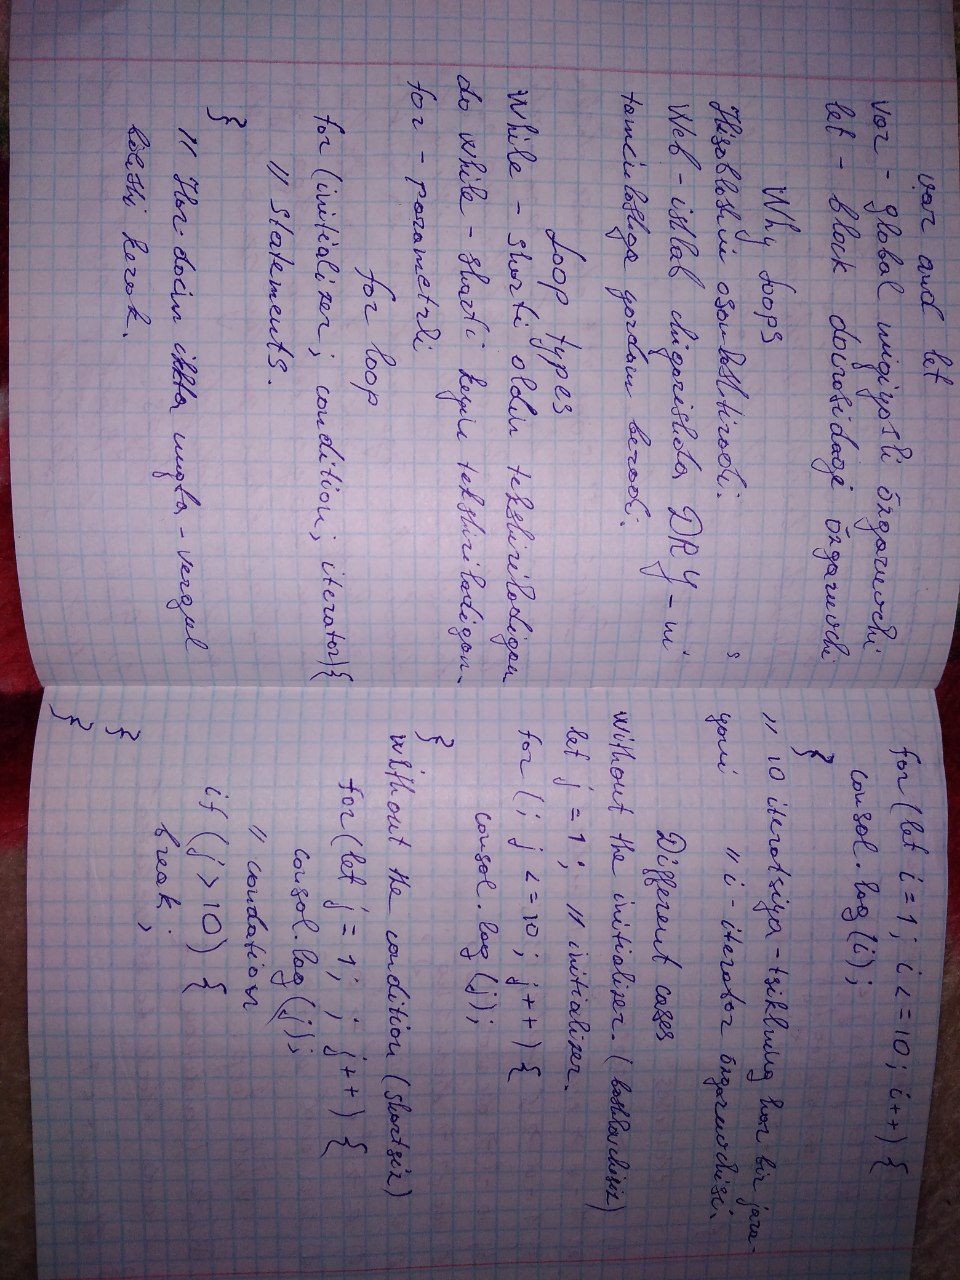 var and let
var - global miqiyosli õzgaruvchi
let - block doirasidagi õzgaruvchi
Why loops
Hisoblashni osonlashtiradi.
Web-ishlab chiqarishda DRY-ni
tamoilashga yordam beradi.
Loop types
While - sharti oldin tekshiriladigan
do while - sharti keyin tekshiriladigan.
for - parametrli
for loop
for (initializer; condition; iterator){
// statements.
}
// Har doim ikkta nuqta-vergul
bõlishi kerak.
5
for (let i = 1; i <= 10; i++) {
consol.log(i);
}
// 10 iteratsiya - tsiklning har bir jara-
yoni // i - iterator õzgaruvchisi.
Different cases
Without the initializer. (boshlovchisiz)
let j = 1; // initializer.
for (; j <= 10; j++) {
consol.log(j);
}
Without the condition (shartsiz)
for (let j = 1; ; j++) {
consol.log(j);
// condation
if (j > 10) {
break;
}
}